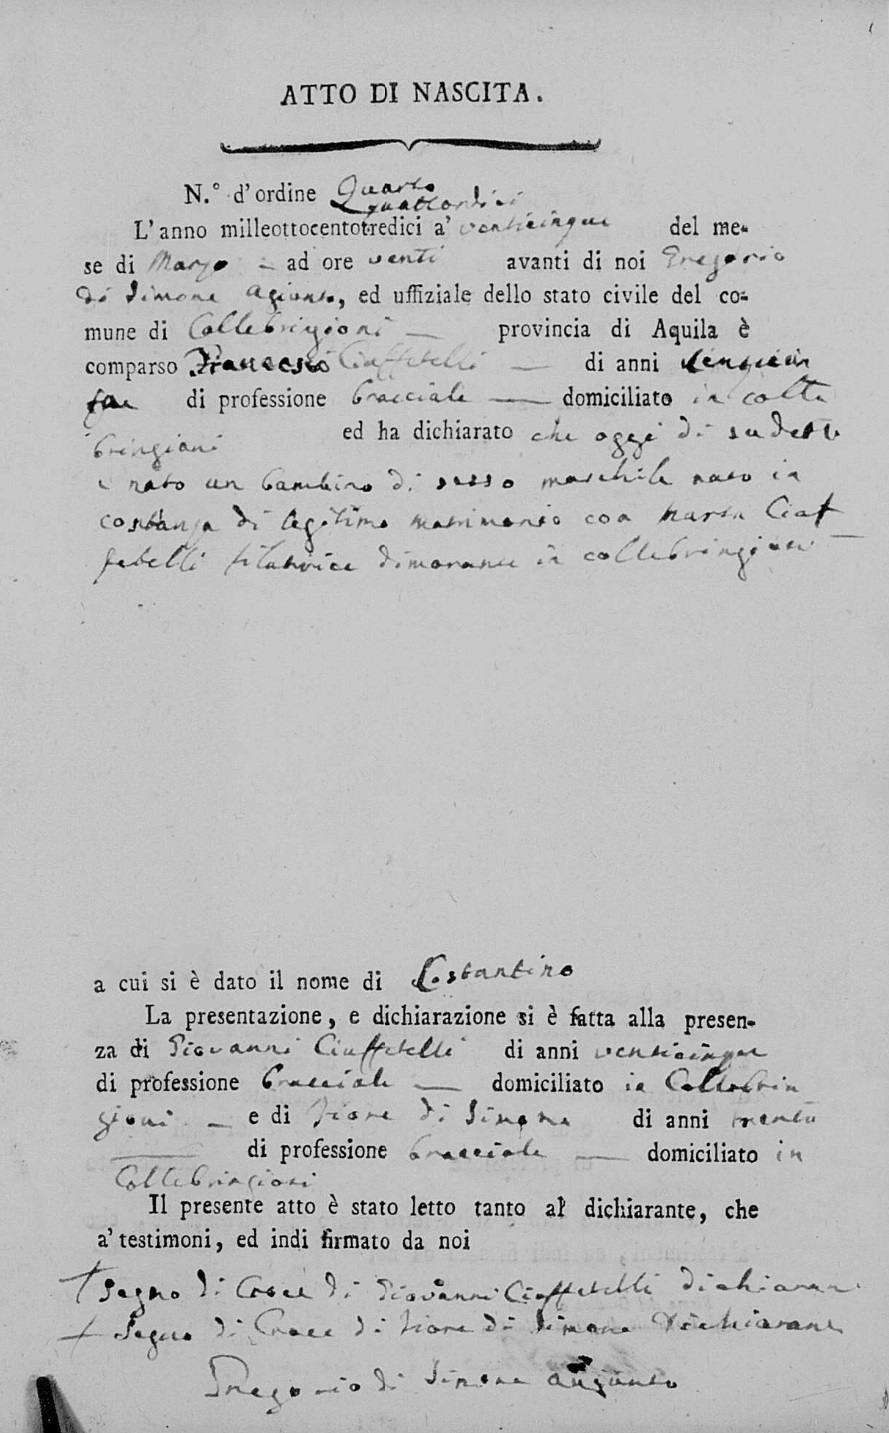 ATTO DI NASCITA.
N.° d'ordine Quarto
quattordici
L'anno milleottocentotredici a' venticinque del me-
se di Marzo - ad ore venti avanti di noi Gregorio
di Simone Agiunto, ed uffiziale dello stato civile del co-
mune di Collebrigioni — provincia di Aquila è
comparso Francesco Ciaffetelli — di anni
di professione bracciale — domiciliato in colle
bringioni ed ha dichiarato che oggi di sudetto
è nato un bambino di sesso maschile nato in
costanza di legitimo matrimonio con Ciaf
fetelli filatrice dimorante in collebringioni —
a cui si è dato il nome di Costantino
La presentazione, e dichiarazione si è fatta alla presen-
za di Giovanni Ciaffetelli di anni venticinque
di professione bracciale — domiciliato in Collebrin
gioni - e di Fiore di Simone di anni trenta
— di professione bracciale — domiciliato in
Collebringioni
Il presente atto è stato letto tanto al dichiarante, che
a' testimoni, ed indi firmato da noi
† Segno di Croce di Giovanni Ciaffetelli
+ Segno di Croce di Fiore di Simone
Gregorio di Simone